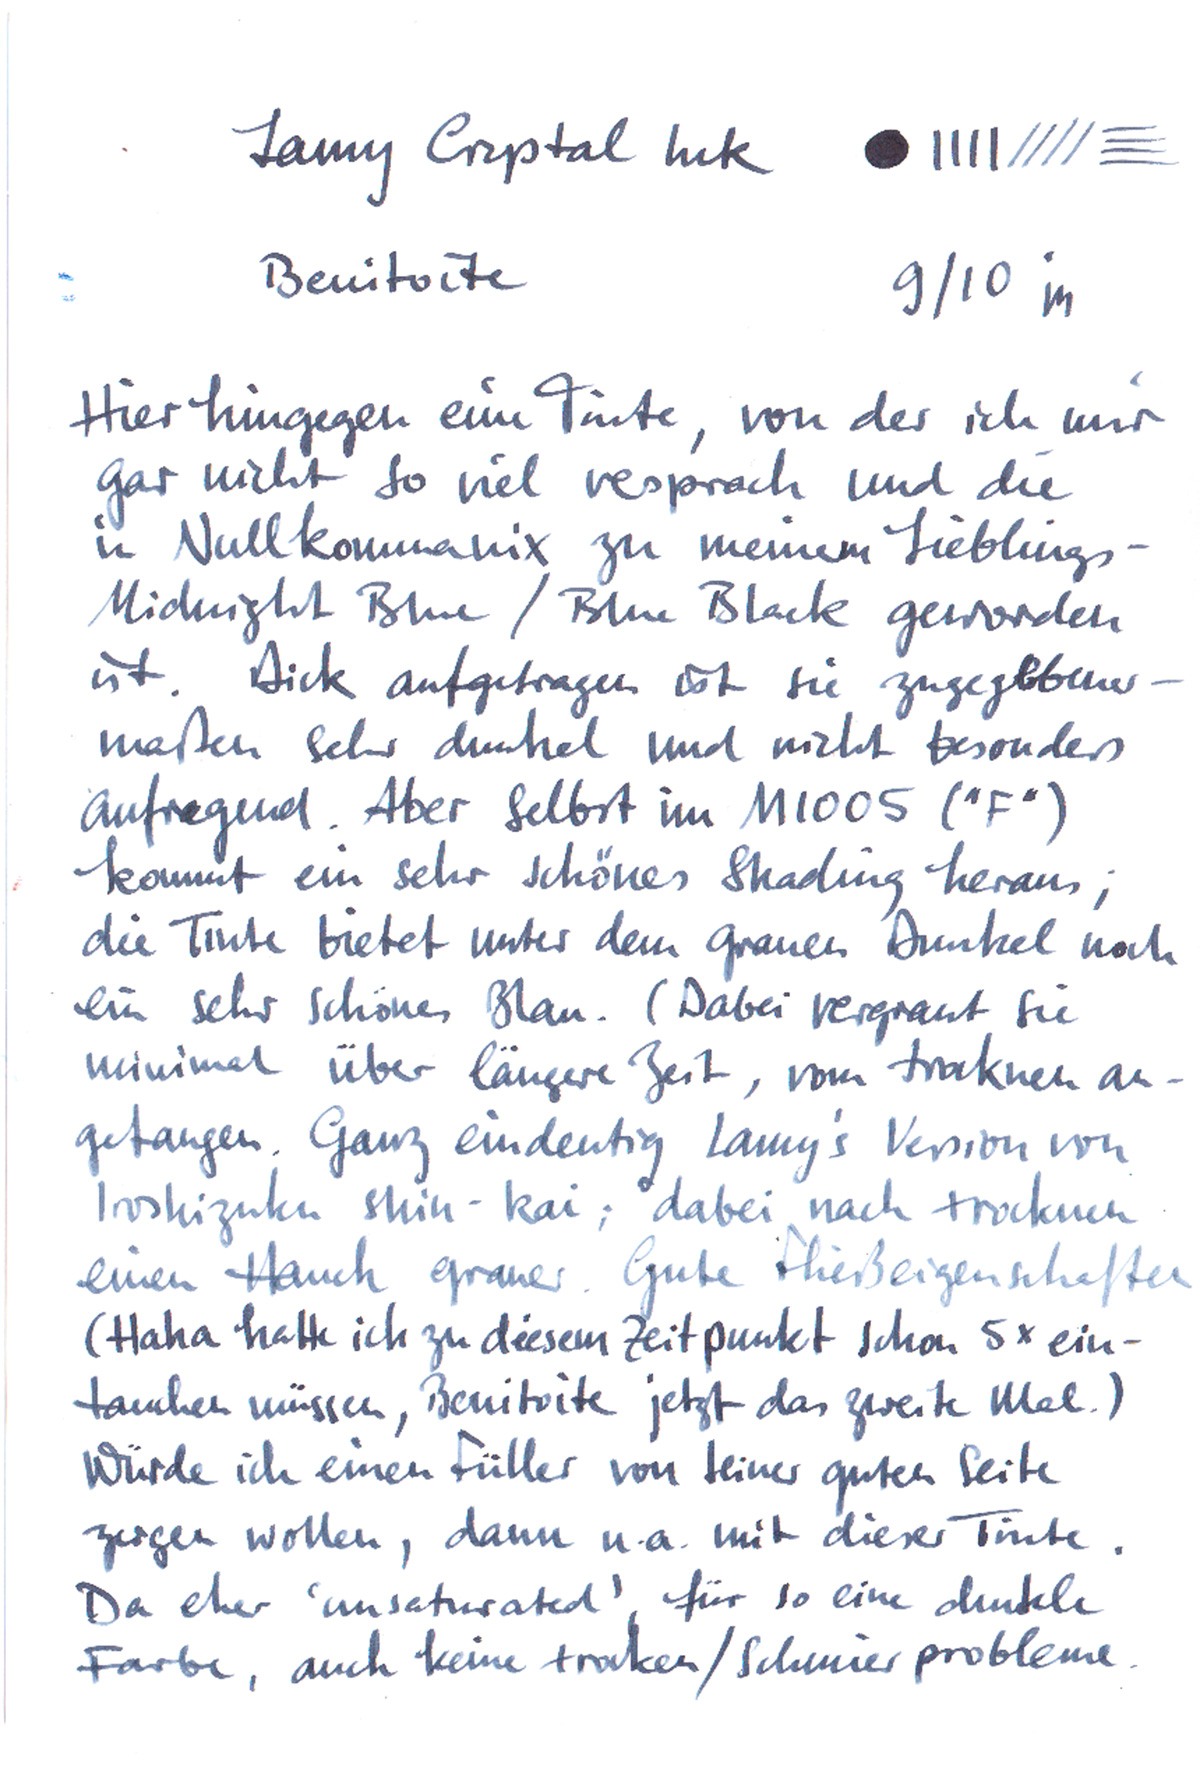 Lamy Crystal Ink
Benitoite 9/10 in
Hier hingegen eine Tinte, von der ich mir
gar nicht so viel versprach und die
in Nullkommanix zu meinem Lieblings-
Midnight Blue / Blue Black geworden
ist. Dick aufgetragen ist sie zugegebener-
maßen sehr dunkel und nicht besonders
aufregend. Aber selbst im M1005 ("F")
kommt ein sehr schönes Shading heraus;
die Tinte bietet unter dem grauen Dunkel noch
ein sehr schönes Blau. (Dabei vergraut sie
minimal über längere Zeit, vom trocknen an-
gefangen. Ganz eindeutig Lamy's Version von
Iroshizuku shin-kai; dabei nach trocknen
einen Hauch grauer. Gute Fließeigenschaften
(Haha hatte ich zu diesem Zeitpunkt schon 5x ein-
tauchen müssen, Benitoite jetzt das zweite Mal.)
Würde ich einen Füller von seiner guten Seite
zeigen wollen, dann u.a. mit dieser Tinte.
Da eher 'unsaturated', für so eine dunkle
Farbe, auch keine trocken/Schmierprobleme.